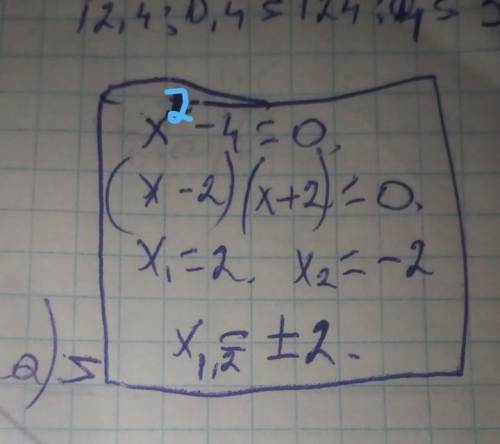 12,4:0,4=124:4=3
x²-4=0.
(x-2)(x+2)=0.
x₁=2. x₂=-2
x₁,₂=±2.
a) 5